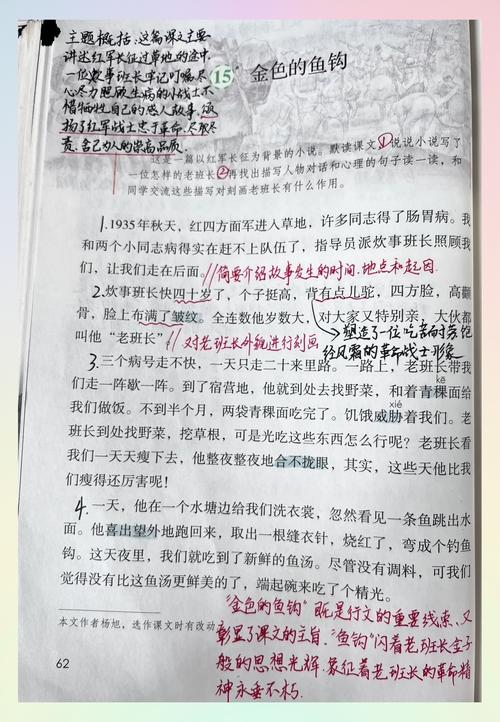 主题概括:这篇课文主要
讲述红军长征过草地的途中,
一位炊事班长牢记叮嘱,尽
心尽力照顾生病的小战士,不
惜牺牲自己的感人故事,颂
扬了红军战士忠于革命、尽职尽
责、舍己为人的崇高品质。
15 金色的鱼钩
这是一篇以红军长征为背景的小说。默读课文①说说小说写了
一位怎样的老班长②再找出描写人物动作和心理的句子读一读,和
同学交流这些描写对刻画老班长有什么作用。
1.1935年秋天,红四方面军进入草地,许多同志得了肠胃病。我
和两个小同志病得实在赶不上队伍了,指导员派炊事班长照顾我
们,让我们走在后面。//简要介绍故事发生的时间、地点和起因
2.炊事班长快四十岁了,个子挺高,背有点儿驼,四方脸,高颧
骨,脸上布满了皱纹。全连数他岁数大,对大家又特别亲,大伙都
叫他“老班长”。//对老班长外貌进行刻画
→塑造了一位吃苦耐劳、饱
经风霜的革命战士形象
3.三个病号走不快,一天只走二十来里路。一路上,老班长带我
kē
们走一阵歇一阵。到了宿营地,他就到处去找野菜,和着青稞面给
xié
我们做饭。不到半个月,两袋青稞面吃完了。饥饿威胁着我们。老
班长到处找野菜,挖草根,可是光吃这些东西怎么行呢?老班长看
我们一天天瘦下去,他整夜整夜地合不拢眼,其实,这些天他比我
们瘦得还厉害呢!
4.一天,他在一个水塘边给我们洗衣裳,忽然看见一条鱼跳出水
面。他喜出望外地跑回来,取出一根缝衣针,烧红了,弯成个钓鱼
钩。这天夜里,我们就吃到了新鲜的鱼汤。尽管没有调料,可我们
觉得没有比这鱼汤更鲜美的了,端起碗来吃了个精光。
“金色的鱼钩”既是行文的重要线索,又
彰显了课文的主旨。“鱼钩”闪着老班长金子
般的思想光辉,象征着老班长的革命精
神永垂不朽。
本文作者杨旭,选作课文时有改动。
62